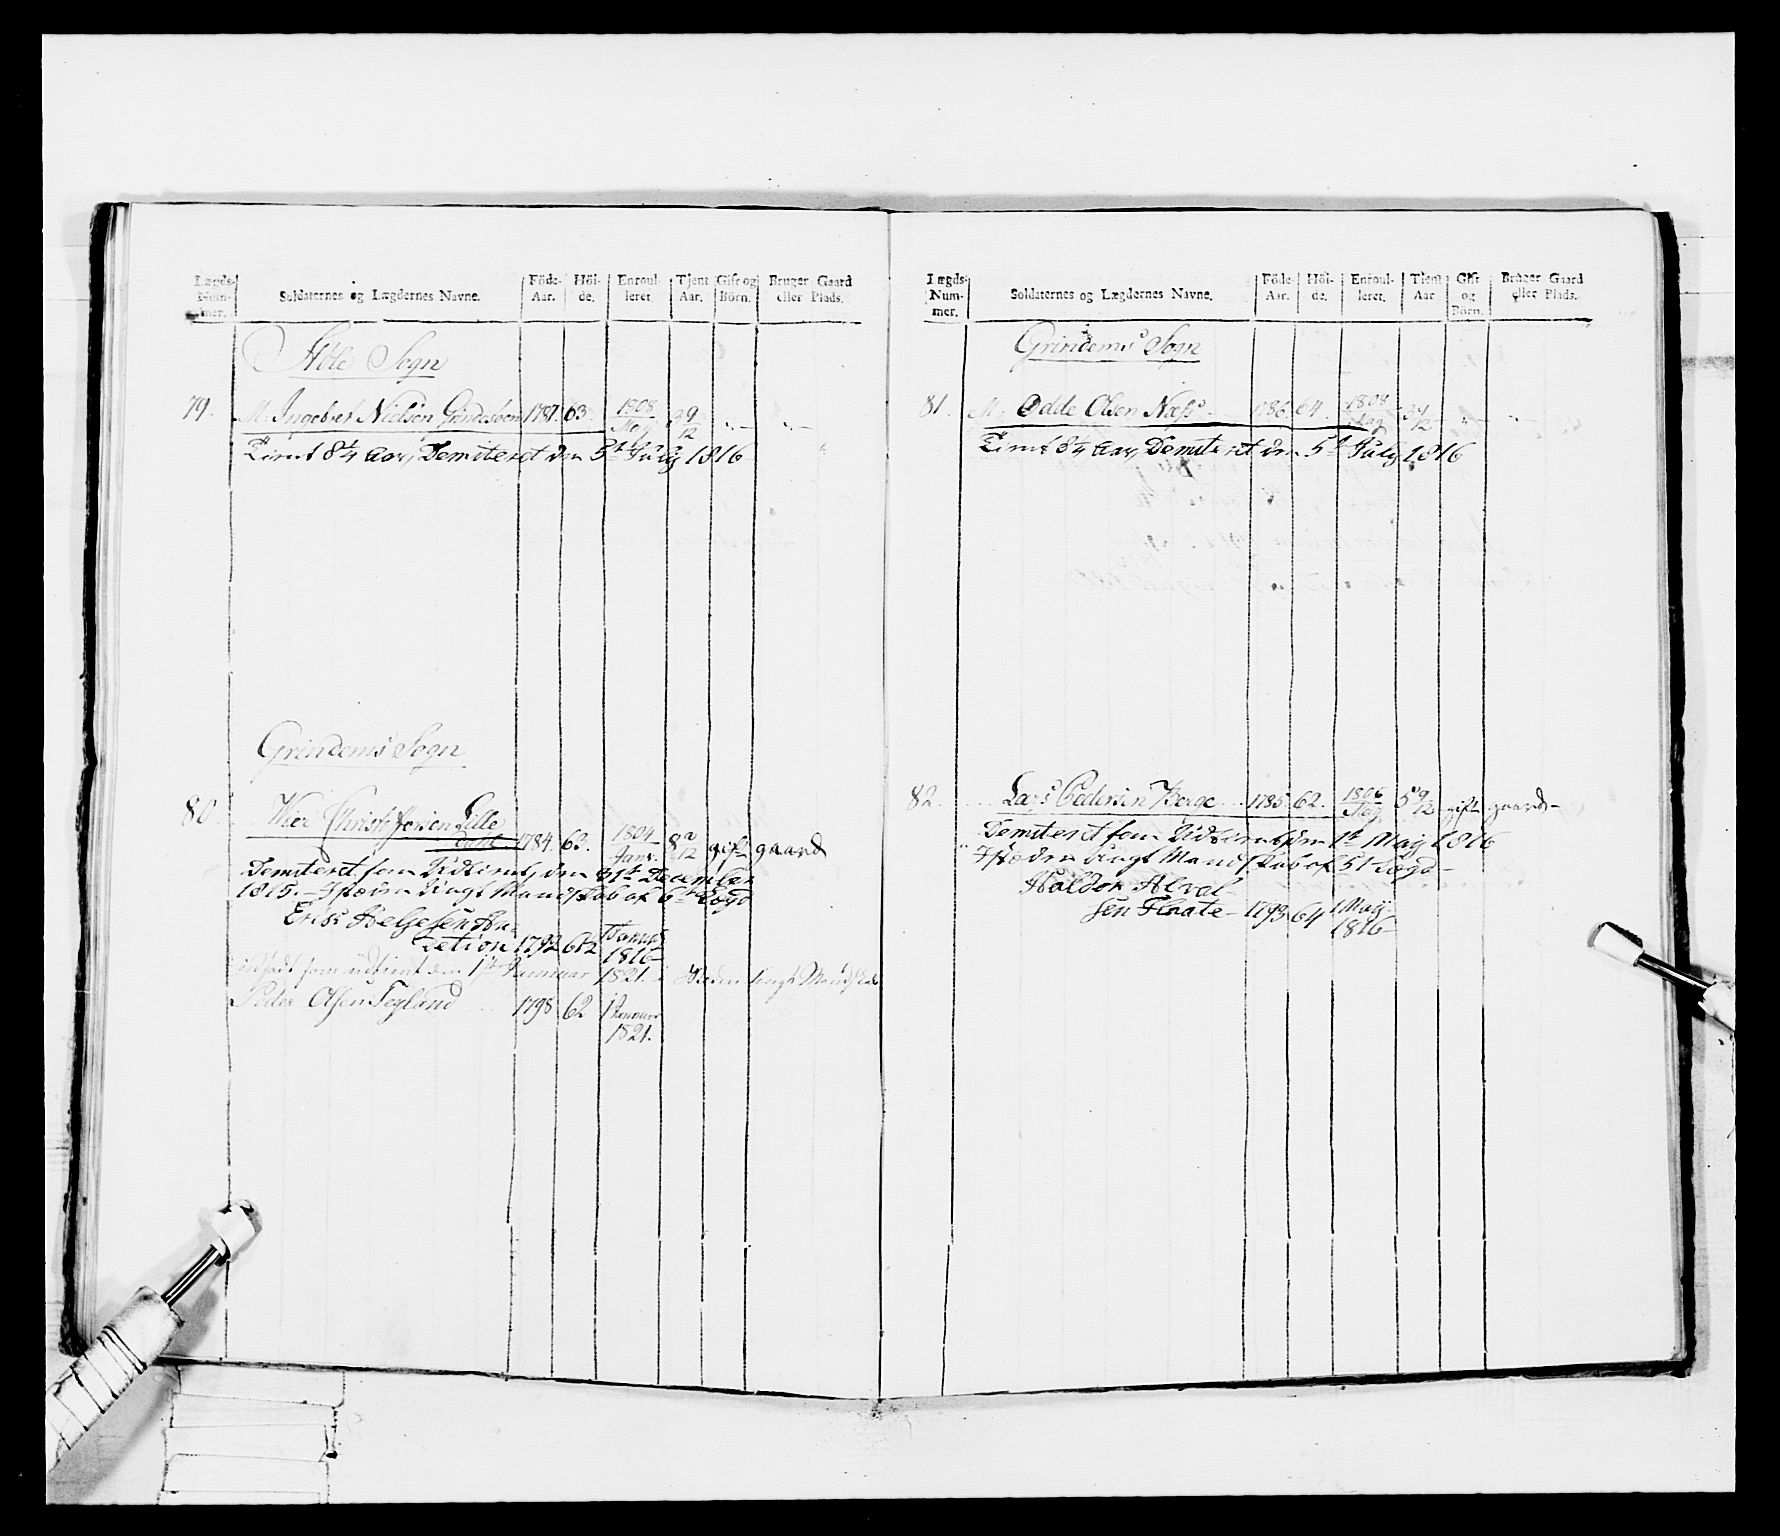 Lægds-
Num-
mer.
Soldaternes og Lægdernes Navne.
Föde-
Aar.
Höi-
de.
Enroul-
leret.
Tjent
Aar.
Gift og
Börn.
Bruger Gaard
eller Plads.
Sogn
79. M. Ingebret Nielsen 1787. 63. 1808 9/12 "- "-
Tient 8¼ Aar, Demiteret den 5te July 1816
Grindems Sogn
80. Christophersen Lille
1784. 63. 1804 Janr. 8 2/12 gift gaard
Demiteret som Udtient, den 31te December
1815. Isteden Ungt Mandskab af 6te Lægd
Erik Helgesen
1792 61½ Januar 1816
som udtient den 1ste Januar 1821. Isteden Ungt Mandskab
Peder Olsen Tegland 1798 62 1 Januar
1821.
Lægds-
Num-
mer.
Soldaternes og Lægdernes Navne.
Föde-
Aar.
Höi-
de.
Enroul-
leret.
Tjent
Aar
Gift
og
Börn.
Bruger Gaard
eller Plads.
Grindems Sogn
81. M. Odde Olsen Næss 1786. 64. 1808 3 4/12 "- "-
Tient 8¼ Aar, Demiteret den 5te July 1816
82. Lars Pedersen Berge 1785. 62. 1806 5 9/12 gift gaard-
Demiteret som Udtient den 1te May 1816
Isteden Ungt Mandskab af 51 Lægd-
Haldor Halvor
sen Flaate 1793 64 1 May
1816